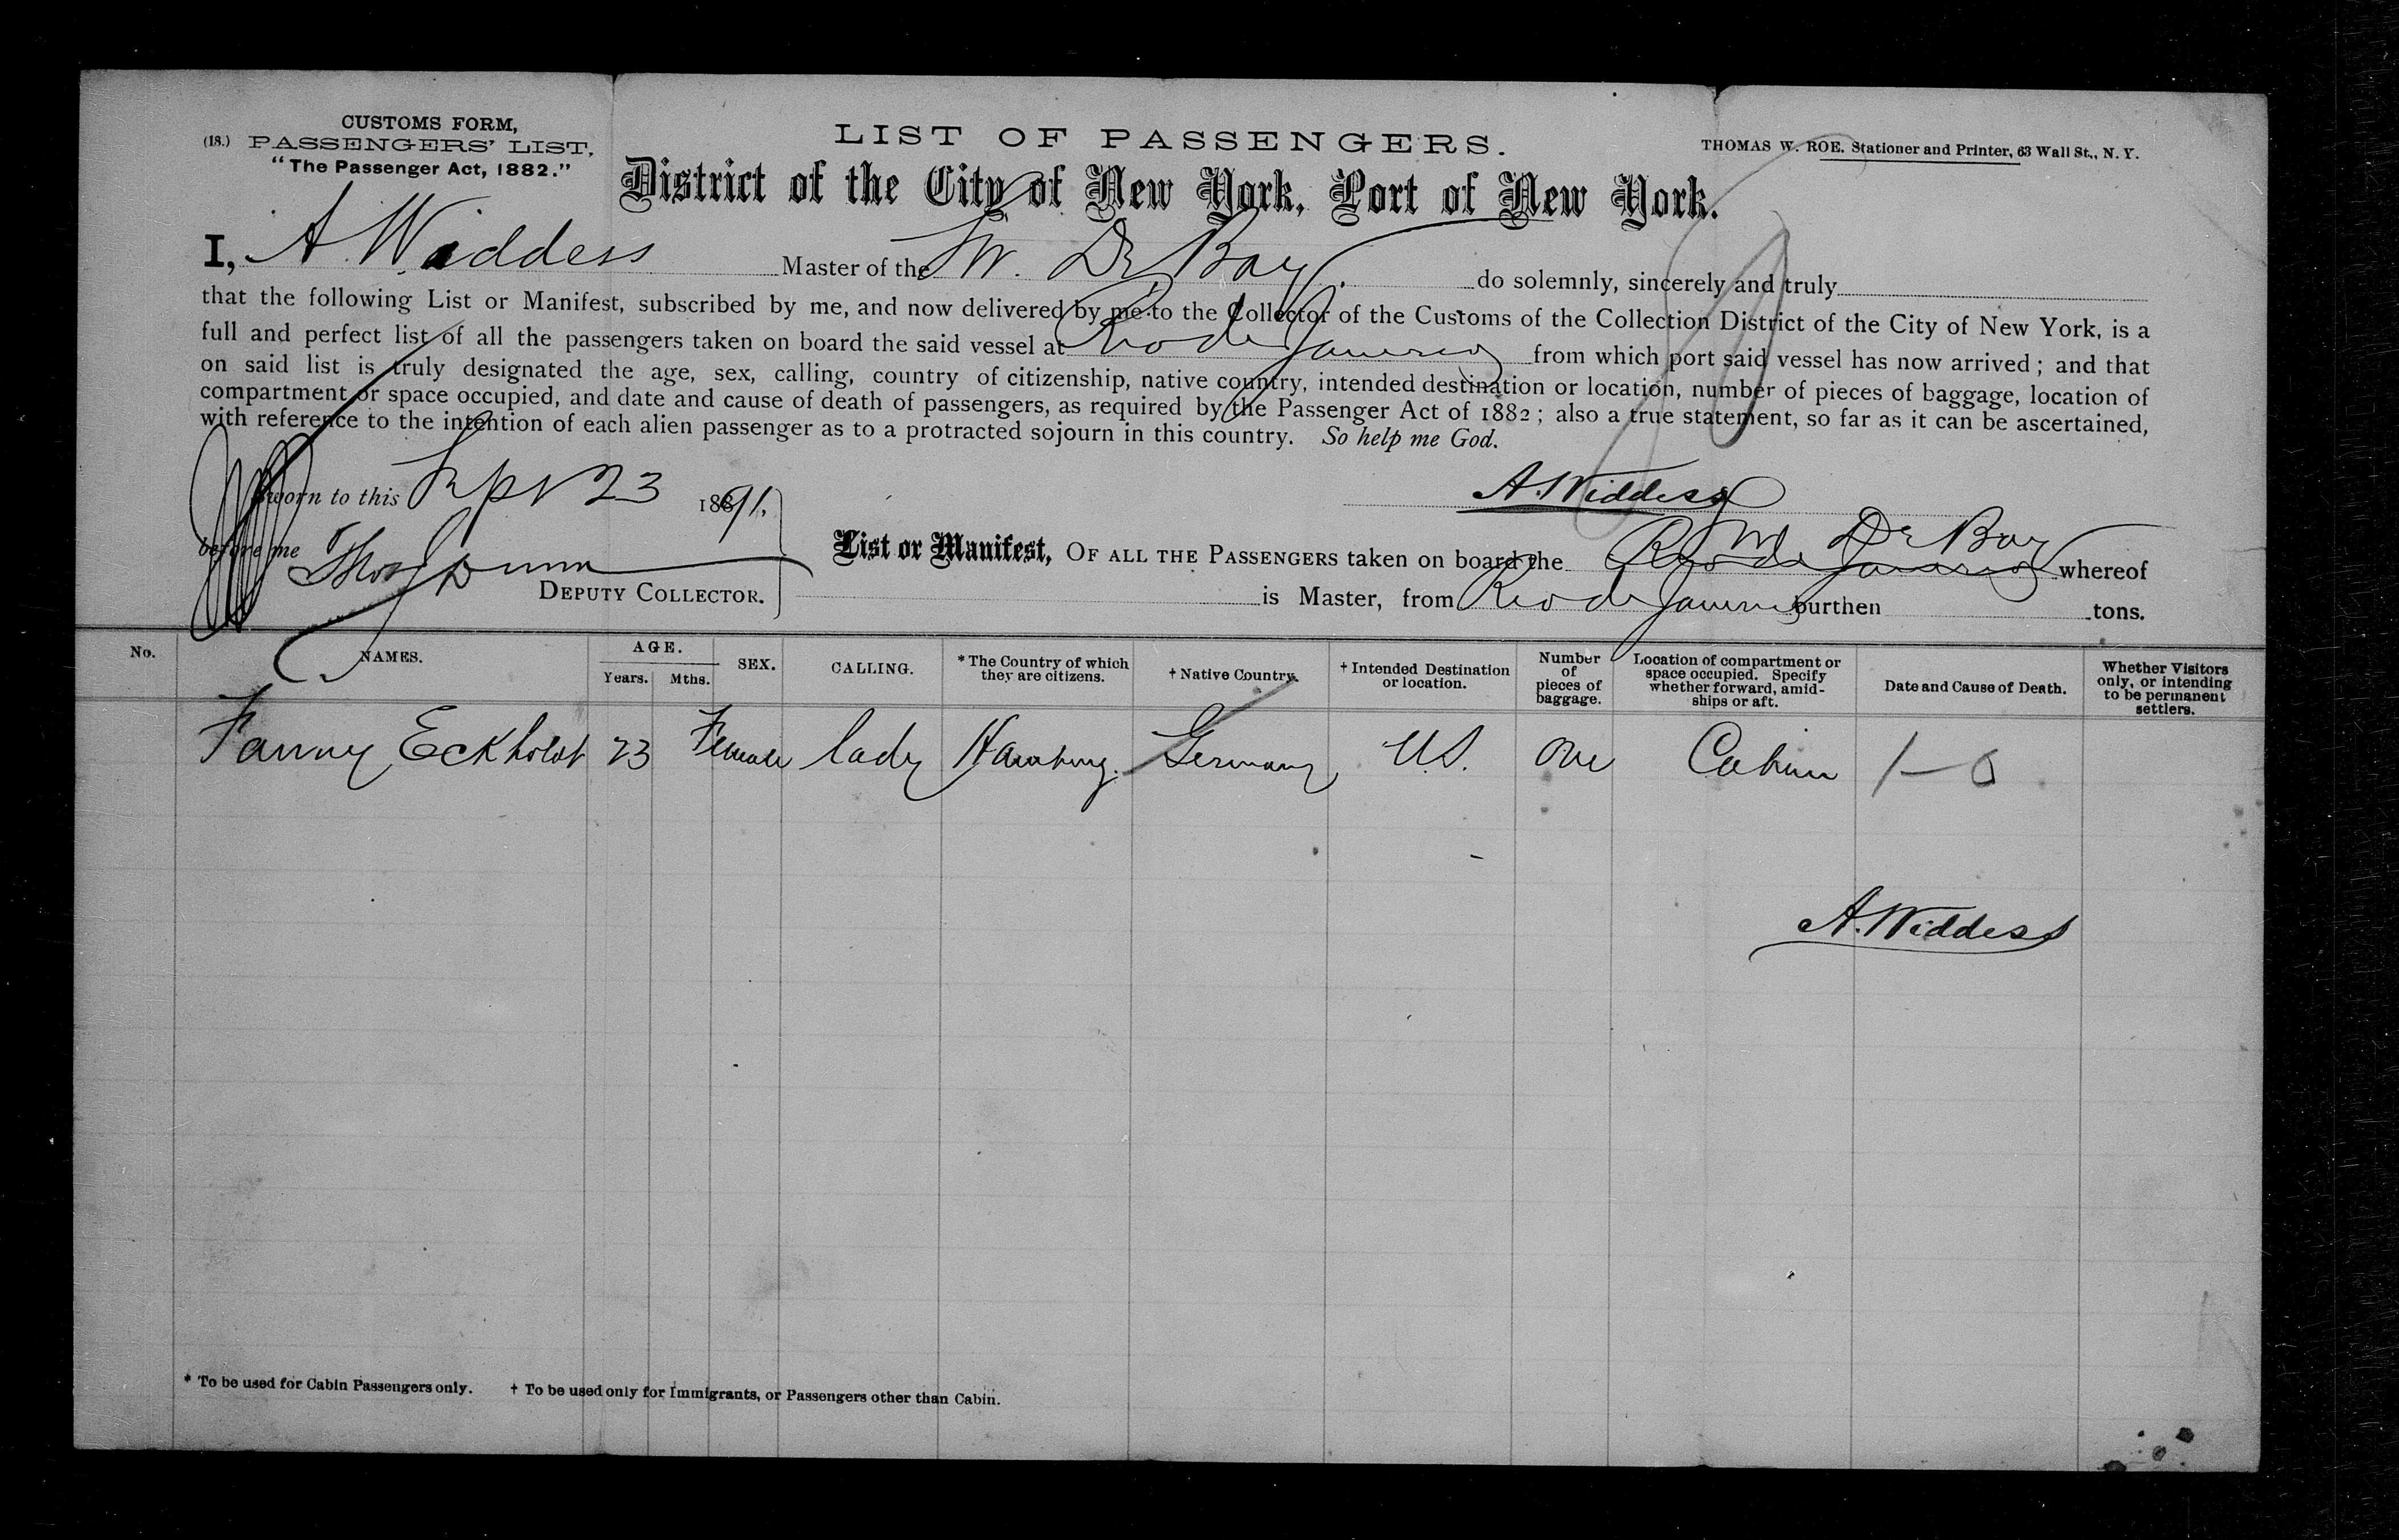 CUSTOMS FORM,
(18.) PASSENGERS' LIST,
"The Passenger Act, 1882."
LIST OF PASSENGERS.
THOMAS W. ROE. Stationer and Printer, 63 Wall St., N. Y.
District of the City of New York, Port of New York.
I, A. Widdess Master of the W. De Bay. do solemnly, sincerely and truly
that the following List or Manifest, subscribed by me, and now delivered by me to the Collector of the Customs of the Collection District of the City of New York, is a
full and perfect list of all the passengers taken on board the said vessel at Rio de Janeiro from which port said vessel has now arrived; and that
on said list is truly designated the age, sex, calling, country of citizenship, native country, intended destination or location, number of pieces of baggage, location of
compartment or space occupied, and date and cause of death of passengers, as required by the Passenger Act of 1882; also a true statement, so far as it can be ascertained,
with reference to the intention of each alien passenger as to a protracted sojourn in this country. So help me God.
Sworn to this Sept 23 1891.
A. Widdess
before me Thos Dunn
DEPUTY COLLECTOR.
List or Manifest, OF ALL THE PASSENGERS taken on board the De Bay whereof
is Master, from Rio de Janeiro burthen tons.
No. NAMES. AGE. Years. Mths. SEX. CALLING. *The Country of which they are citizens. †Native Country. †Intended Destination or location. Number of pieces of baggage. Location of compartment or space occupied. Specify whether forward, amidships or aft. Date and Cause of Death. Whether Visitors only, or intending to be permanent settlers.
Fanny Eckholdt 23 Female lady Hamburg. Germany U.S. One Cabin 1-0
A. Widdess
* To be used for Cabin Passengers only. † To be used only for Immigrants, or Passengers other than Cabin.